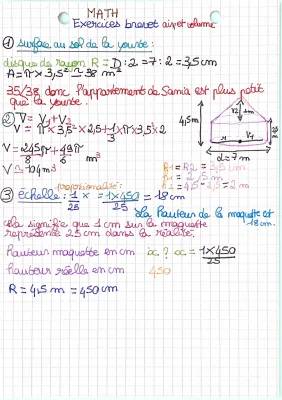 MATH
Exercices brevet aire et volume
① surface au sol de la yourte:
disque de rayon R = D : 2 = 7 : 2 = 3,5 cm
A = π x 3,5² ≈ 38 m²
35/38 donc l'appartement de Samia est plus petit
que la yourte.
② V = V1 + V2
V = π x 3,5² x 2,5 + 1/3 π x 3,5² x 2
V = 245π/8 + 49π/6 m³
V ≈ m³
4,5m
d = 7m
R1 = R2 = 3,5 cm
= 2,5 m
= 4,5 - 2,5 = 2 m
proportionnalité:
③ échelle: 1/25 x = 1x450/25 = 18 cm
la hauteur de la maquette est
18 cm.
Cela signifie que 1 cm sur la maquette
représente 25 cm dans la réalité.
hauteur maquette en cm x ? x = 1x450/25
hauteur réelle en cm 450
R = 4,5 m = 450 cm